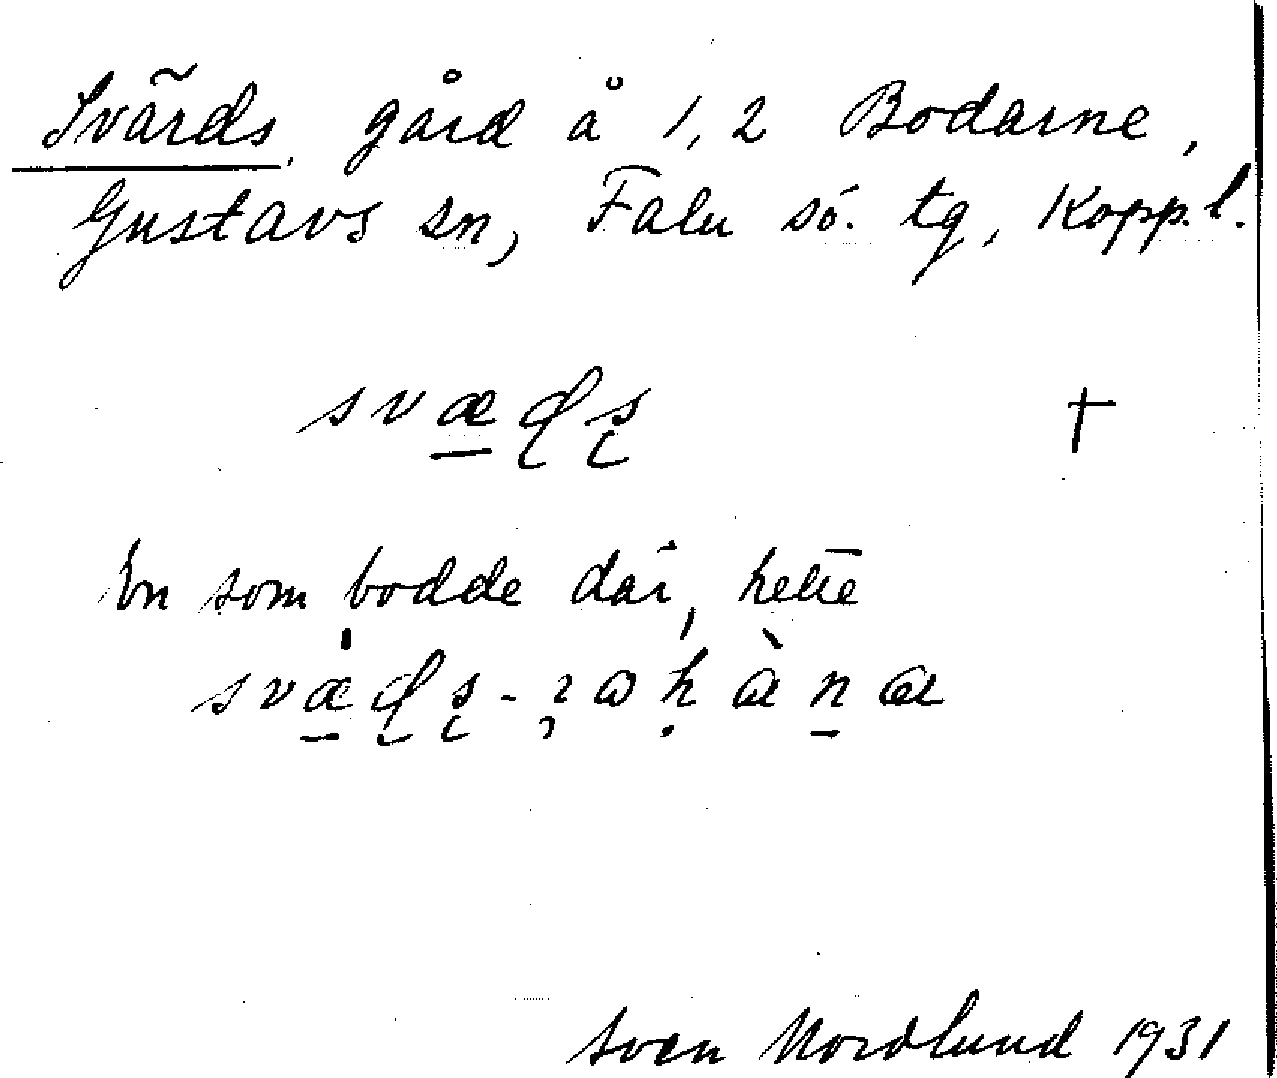 Svärds, gård å 1, 2 Bodarne,
Gustavs sn, Falu sö. tg, Kopp.l.
svæḍṣ +
En som bodde där, hette
svæ̀ḍṣ-ɿɷhànɑ
Sven Nordlund 1931